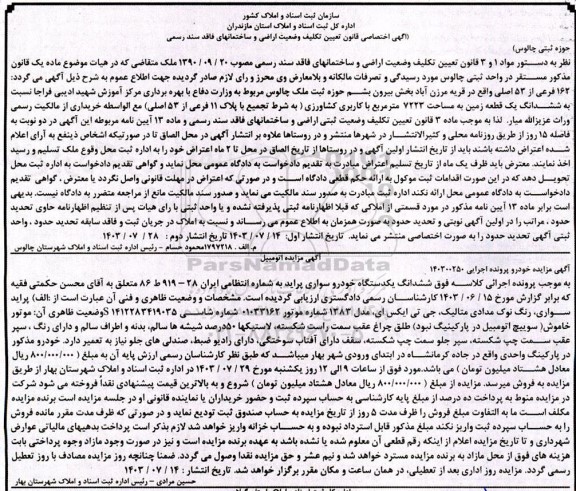 سازمان ثبت اسناد و املاک کشور
اداره کل ثبت اسناد و املاک استان مازندران
(آگهی اختصاصی قانون تعیین تکلیف وضعیت اراضی و ساختمانهای فاقد سند رسمی
حوزه ثبتی چالوس)
نظر به دستور مواد ۱ و ۳ قانون تعیین تکلیف وضعیت اراضی و ساختمانهای فاقد سند رسمی مصوب ۲۰ / ۰۹ / ۱۳۹۰ ملک متقاضی که در هیات موضوع ماده یک قانون
مذکور مستقر در واحد ثبتی چالوس مورد رسیدگی و تصرفات مالکانه و بلامعارض وی محرز و رای لازم صادر گردیده جهت اطلاع عموم به شرح ذیل آگهی می گردد:
۱۶۲ فرعی از ۵۳ اصلی واقع در قریه مرزن آباد بخش بیرون بشم حوزه ثبت ملک چالوس مربوط به وزارت دفاع با بهره برداری مرکز آموزش شهید ادیبی فراجا نسبت
به ششدانگ یک قطعه زمین به مساحت ۷۲۲۲ مترمربع با کاربری کشاورزی ( به شرط تجمیع با پلاک ۱۱ فرعی از ۵۳ اصلی) مع الواسطه خریداری از مالکیت رسمی
وراث عزیزالله میار. لذا به موجب ماده ۳ قانون تعیین تکلیف وضعیت ثبتی اراضی و ساختمانهای فاقد سند رسمی و ماده ۱۳ آیین نامه مربوطه این آگهی در دو نوبت به
فاصله ۱۵ روز از طریق روزنامه محلی و کثیرالانتشار در شهرها منتشر و در روستاها علاوه بر انتشار آگهی در محل الصاق تا در صورتیکه اشخاص ذینفع به آرای اعلام
شده اعتراض داشته باشند باید از تاریخ انتشار اولین آگهی و در روستاها از تاریخ الصاق در محل تا ۲ ماه اعتراض خود را به اداره ثبت محل وقوع ملک تسلیم و رسید
اخذ نمایند. معترض باید ظرف یک ماه از تاریخ تسلیم اعتراض مبادرت به تقدیم دادخواست به دادگاه عمومی محل نماید و گواهی تقدیم دادخواست به اداره ثبت محل
تحویل دهد که در این صورت اقدامات ثبت موکول به ارائه حکم قطعی دادگاه است و در صورتی که اعتراض در مهلت قانونی واصل نگردد یا معترض ، گواهی تقدیم
دادخواست به دادگاه عمومی محل ارائه نکند اداره ثبت مبادرت به صدور سند مالکیت می نماید و صدور سند مالکیت مانع از مراجعه متضرر به دادگاه نیست. بدیهی
است برابر ماده ۱۳ آیین نامه مذکور در مورد قسمتی از املاکی که قبلا اظهارنامه ثبتی پذیرفته نشده و یا واحد ثبتی با رای هیات پس از تنظیم اظهارنامه حاوی تحدید
حدود ، مراتب را در اولین آگهی نوبتی و تحدید حدود به صورت همزمان به اطلاع عموم می رساند و نسبت به املاک در جریان ثبت و فاقد سابقه تحدید حدود ، واحد
ثبتی آگهی تحدید حدود را به صورت اختصاصی منتشر می نماید. تاریخ انتشار اول: ۱۴ / ۰۷ / ۱۴۰۳ تاریخ انتشار دوم : ۲۸ / ۰۷ / ۱۴۰۳
م. الف . ۱۷۹۷۲۱۸ محمود حسام - رئیس اداره ثبت اسناد و املاک شهرستان چالوس
ParsNamadData
آگهی مزایده اتومبیل
آگهی مزایده خودرو پرونده اجرایی ۱۴۰۳۰۰۲۵۰
به موجب پرونده اجرائی کلاسه فوق ششدانگ یکدستگاه خودرو سواری پراید به شماره انتظامی ایران ۲۸ - ۹۱۹ ط ۸۶ متعلق به آقای محسن حکمتی فقیه
که برابر گزارش مورخ ۱۵ / ۰۶ / ۱۴۰۳ کارشناسان رسمی دادگستری ارزیابی گردیده است. مشخصات و وضعیت ظاهری و فنی آن عبارت است از :الف) پراید
سواری، رنگ نوک مدادی متالیک، جی تی ایکس آی، مدل ۱۳۸۳ شماره موتور ۰۱۰۳۳۱۶۲ شماره شاسی S۱۴۱۲۲۸۳۴۱۹۰۳۵ وضعیت ظاهری آن: موتور
خاموش( سوییچ اتومبیل در پارکینگ نبود) طلق چراغ عقب سمت راست شکسته، لاستیکها ۵۰درصد شیشه ها سالم، بدنه و اطراف سالم و دارای رنگ ، سپر
عقب سمت چپ شکسته، سپر جلو سمت چپ شکسته، سقف دارای آفتاب سوختگی، دارای رادیو ضبط، صندلی های جلو نیاز به تعمیر دارد. خودرو مذکور
در پارکینگ واحدی واقع در جاده کرمانشاه در ابتدای ورودی شهر بهار میباشد که طبق نظر کارشناسان رسمی ارزش پایه آن به مبلغ ( ۸۰۰/۰۰۰/۰۰۰ ریال
معادل هشتاد میلیون تومان ) می باشد.مورد فوق از ساعات ۹ الی ۱۲ روز یکشنبه مورخ ۲۹ / ۰۷ / ۱۴۰۳ در اداره ثبت اسناد و املاک شهرستان بهار از طریق
مزایده به فروش میرسد. مزایده از مبلغ ( ۸۰۰/۰۰۰/۰۰۰ ریال معادل هشتاد میلیون تومان ) شروع و به بالاترین قیمت پیشنهادی نقداً فروخته می شود شرکت
در مزایده منوط به پرداخت ده درصد از مبلغ پایه کارشناسی به حساب سپرده ثبت و حضور خریداران یا نماینده قانونی او در جلسه مزایده است برنده مزایده
مکلف است ما به التفاوت مبلغ فروش را ظرف مدت ۵ روز از تاریخ مزایده به حساب صندوق ثبت تودیع نماید و در صورتی که ظرف مدت مقرر مانده فروش
را به حساب سپرده ثبت واریز نکند مبلغ مذکور قابل استرداد نبوده و به حساب خزانه واریز خواهد شد لازم بذکر است پرداخت بدهیهای مالیاتی عوارض
شهرداری و تا تاریخ مزایده اعلام از اینکه رقم قطعی آن معلوم شده یا نشده باشد به عهده برنده مزایده است و نیز در صورت وجود مازاد وجوه پرداختی بابت
هزینه های فوق از محل مازاد به برنده مزایده مسترد خواهد شد و نیم عشر و حق مزایده نقدا وصول می گردد. ضمنا چنانچه روز مزایده مصادف با روز تعطیل
رسمی گردد. مزایده روز اداری بعد از تعطیلی، در همان ساعت و مکان مقرر برگزار خواهد شد. تاریخ انتشار : ۱۴ / ۰۷ / ۱۴۰۳
حسین مرادی - رئیس اداره ثبت اسناد و املاک شهرستان بهار